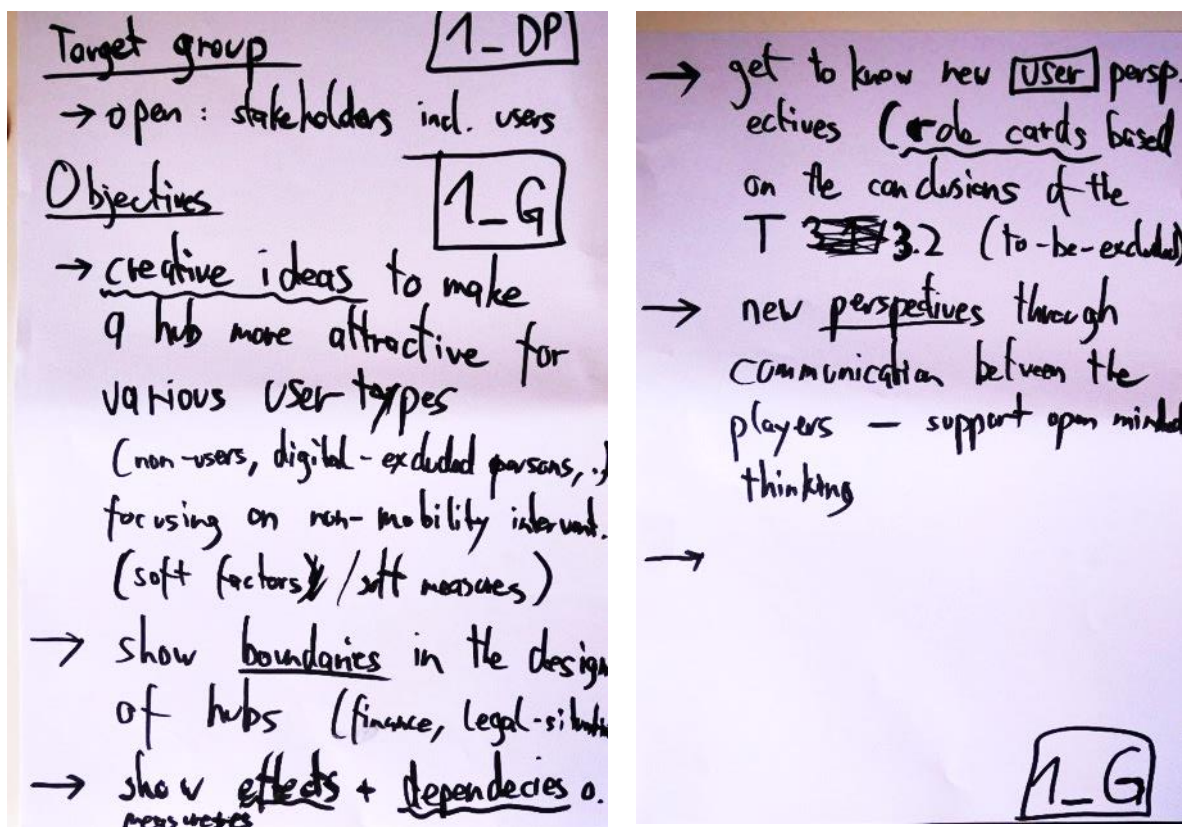 Target group
1_DP
→ open : stakeholders incl. users
Objectives
1_G
→ creative ideas to make
a hub more attractive for
various user types
(non-users, digital-excluded persons, ..)
focusing on non-mobility intervent.
(soft factors / soft measures)
→ show boundaries in the design
of hubs (finance, legal-situatio
→ show effects + dependecies o.
measures
→ get to know new user persp.
ectives (role cards based
on the conclusions of the
T 3.2 (to-be-excluded)
→ new perspectives through
communication between the
players — support open minded
thinking
→
1_G